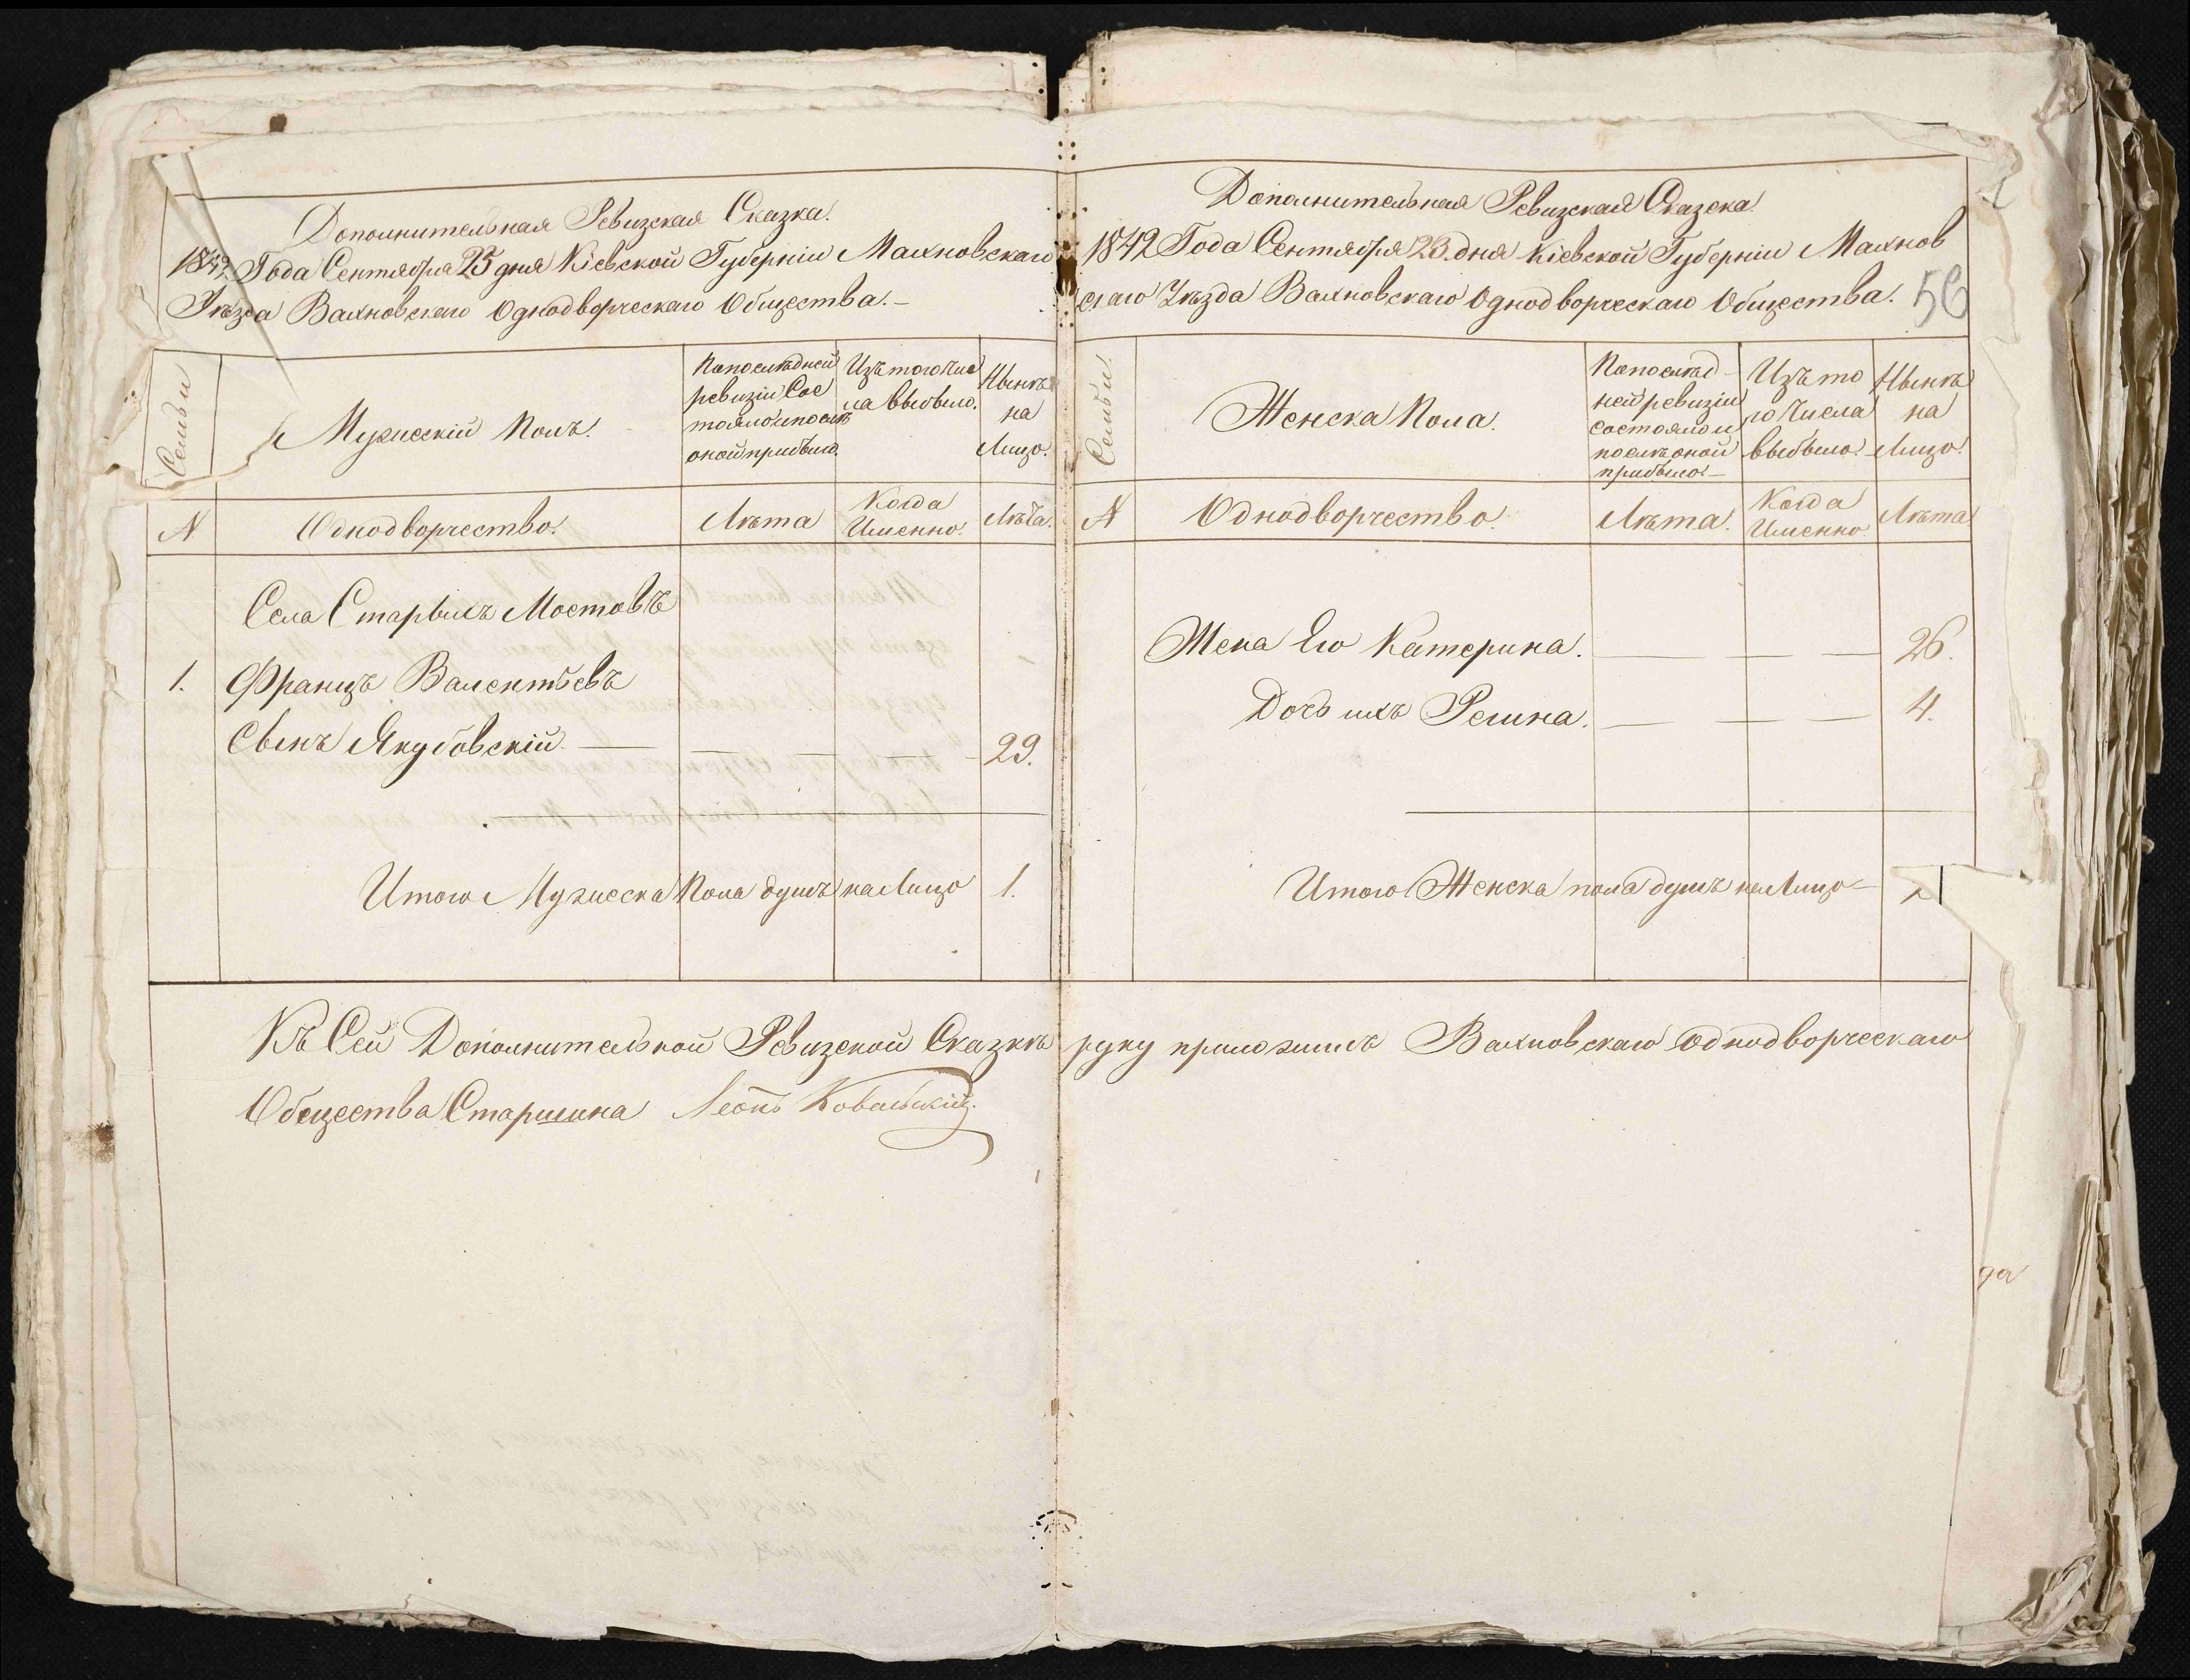 Дополнительная Ревизская Сказка.
1842 Года Сентября 23 дня Кіевской Губерніи Махновскаго
Уѣзда Вахновскаго Однодворческаго Общества. –
Семьи
Мужескій Полъ.
По последней
ревизіи Сос
тояло и послѣ
оной прибыло.
Изъ того Чис
ла выбыло.
Нынѣ
на
Лицо.
N
Однодворчество.
Лѣта
Когда
Именно.
Лѣта.
Села Старыхъ Мостовъ
1. Францъ Валентьевъ
Сынъ Якубовскій. — 29.
Итого Мужеска Пола душъ на Лицо 1.
Дополнительная Ревизская Сказска.
1842 Года Сентября 23. дня Кіевской Губерніи Махнов
скаго Уѣзда Вахновскаго Однодворческаго Общества. 56
Семьи.
Женска Пола.
По послѣд-
ней ревизіи
состояло и
послѣ оной
прибыло. –
Изъ то
го Числа
выбыло.
Нынѣ
на
Лицо.
N
Однодворчество.
Лѣта.
Когда
Именно.
Лѣта
Жена Его Катерина. — — — 26.
Дочь ихъ Регина. — — — 4.
Итого Женска пола душъ на Лицо –
Къ Сей Дополнительной Ревизской Сказкѣ руку приложилъ Вахновскаго Однодворческаго
Общества Старшина Леонъ Ковальскій.
да